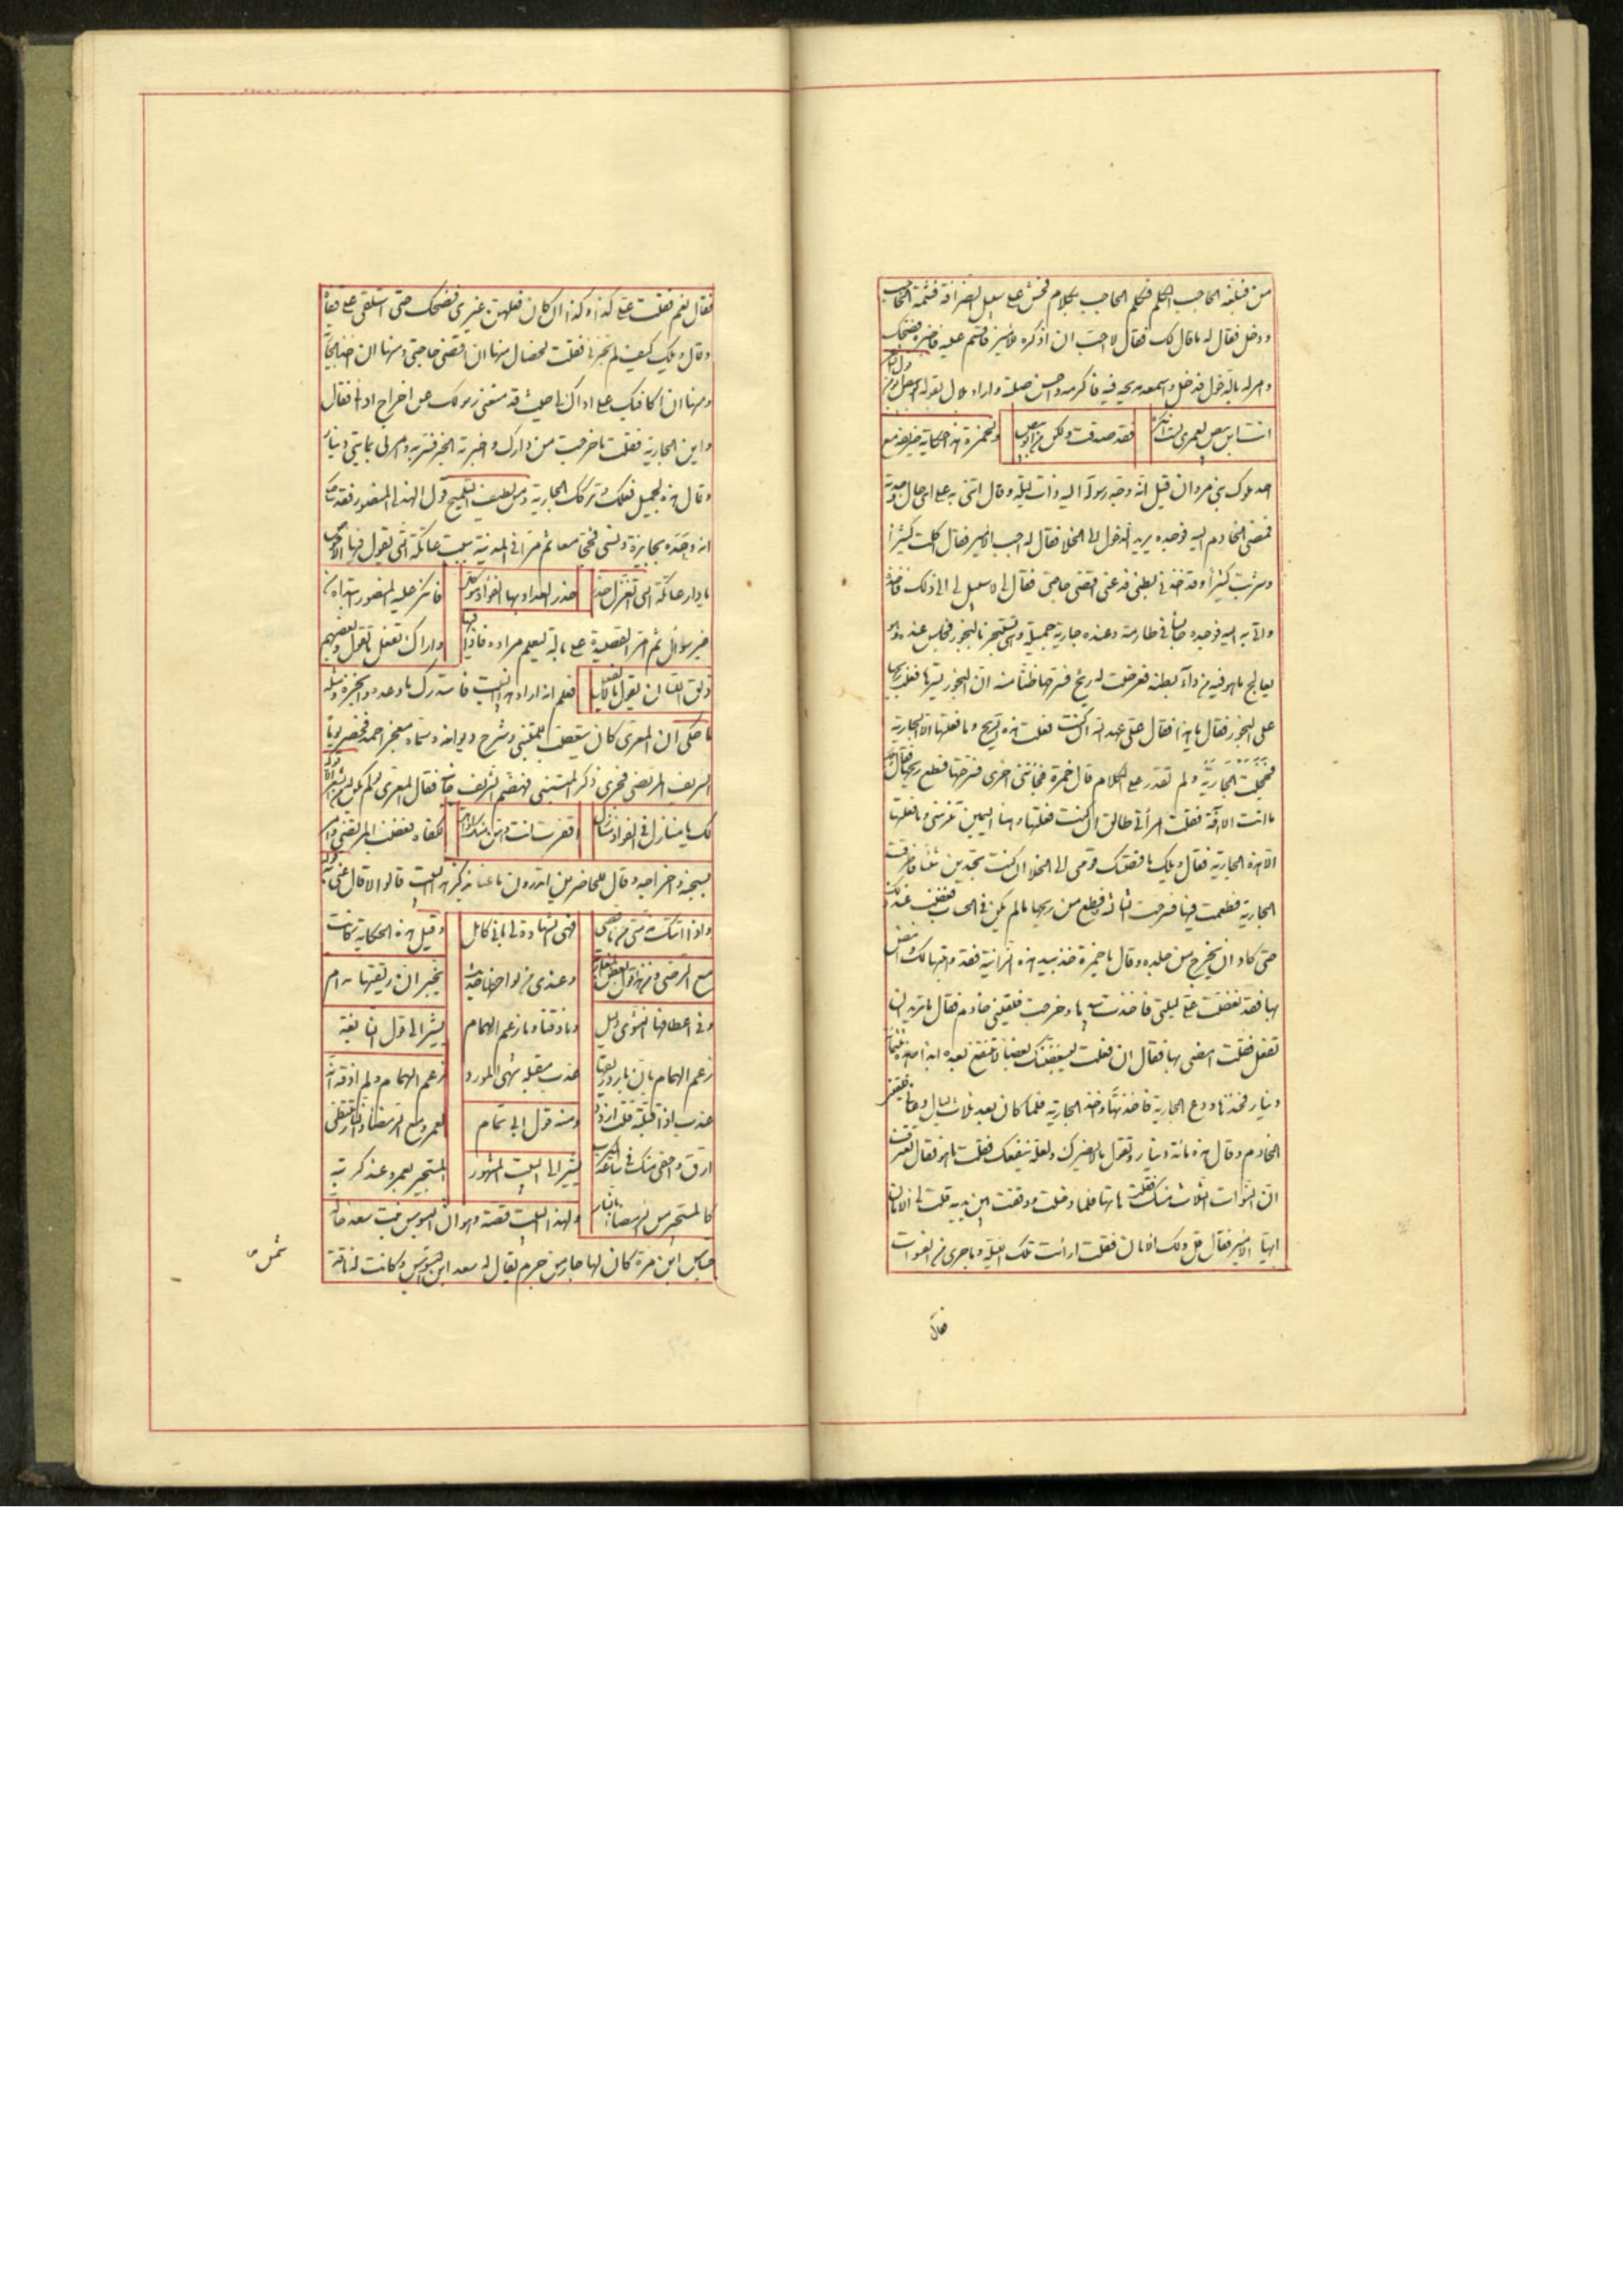 من فبلغه الحاجب الحكم فتكلم الحاجب بكلام فحش على سبيل الضراقة فشتمه الحاجب
ودخل فقال له ما قال لك فقال لا احب ان اذكره للامير فاقسم عليه فاخبره فضحك
وامر له بالدخول فدخل واسمعه مديحه فيه فاكرمه واحسن صلته واراد بلال بقوله
انت ابن بيض لعمري لست انكره
فقد صدقت ولكن من ابو بيض
ولحمزة هذا حكاية ظريفة مع
احد ملوك بني مروان قيل انه وجه رسوله اليه ذات ليلة وقال ائتني به على اي حال وجدته
فمضى الخادم اليه فوجده يريد الدخول الى الخلا فقال له اجب الامير فقال اكلت كثيراً
وشربت كثيراً وقد اخذني بطني فدعني اقضي حاجتي فقال لا سبيل الى ذلك فاخذه
واتى به اليه فوجده جالساً في طارمة وعنده جارية جميلة وهي تسجر بالبخور فجلس عنده وهو
يعالج ما هو فيه من داء بطنه فعرضت له ريح فسرحها ظناً منه ان البخور يسترها فغلب ريحها
على البخور فقال ما هذا فقال علي عهد الله ان كنت فعلت هذه الريح وما فعلتها الا الجارية
فخجلت الجارية ولم تقدر على الكلام قال حمزة فجائتني اخرى فسرحتها فقطع ريحها فقال
ما انت الا آفة فقلت امرأتي طالق ان كنت فعلتها وهذا اليمين تلزمني وما فعلها
الا هذه الجارية فقال ويلك ما قصتك قومي الى الخلا ان كنت تجدين شيئاً فاطرقت
الجارية فطمعت فيها فسرحت الثالثة فقطع من ريحها ما لم يكن في الحساب فغضب عند ذلك
حتى كاد ان يخرج من جلده وقال يا حمزة خذ بيد هذه الزانية فقد وهبتها لك وامض
بها فقد نغصت علي ليلتي فاخذت بيدها وخرجت فلقيني خادم فقال ما تريد ان
تفعل فقلت امضي بها فقال ان فعلت ليبغضنك بغضاً لا تنتفع بعده ابداً وهذه مائتا
دينار فخذها ودع الجارية فاخذتها واخذ الجارية فلما كان بعد ثلاث ليال دعاني فلقيني
الخادم وقال هذه مائة دينار وتقول ما لا يضرك ولعله ينفعك فقلت ما هو فقال تعترف
ان الفسوات الثلاث منك فقلت هاتها فلما دخلت ووقفت بين يديه قلت لي الامان
ايها الامير فقال قل ولك الامان فقلت ارأيت تلك الليلة وما جرى من الفسوات
فقال
فقال نعم فقلت علي كذا وكذا ان كان فعلهن غيري فضحك حتى استلقى على قفاه
وقال ويلك كيف لم تخبرني فقلت لخصال منها ان اقضي حاجتي ومنها ان اخذ الجارية
ومنها ان اكافيك على اذاك لي حيث قد منعني رسولك عن اخراج اذاي فقال
واين الجارية فقلت ما خرجت من دارك واخبرته الخبر فسر به وامر لي بمايتي دينار
وقال هذه لجميل فعلك وتركك الجارية ومن لطيف التلميح قول الهذلي المنصور فقد حكى
انه وعده بجائزة ونسي فحجا معاً ثم مرا في المدينة ببيت عاتكة التي يقول فيها الاحوص
يا دار عاتكة التي اتغزل
حذر العدا وبها الفؤاد موكل
فانكر عليه المنصور ابتداه من
غير سؤال ثم امر القصيدة على باله ليعلم مراده فاذا فيها
واراك تفعل ما تقول وبعضهم
مذق اللسان يقول ما لا يفعل
فعلم انه اراد هذا البيت فاستدرك ما وعده وانجزه ومثله
ما حكي ان المعري كان يتعصب للمتنبي وشرح ديوانه وسماه معجز احمد فحضر يوماً
الشريف المرتضى فجرى ذكر المتنبي فهضم الشريف فقال المعري لو لم يكن له من الشعر الا قوله
لك يا منازل في الفؤاد منازل
اقفرت انت وهن منك اواهل
لكفاه فغضب المرتضى وامر
بسحبه واخراجه وقال للحاضرين اتدرون ما عنا بذكر هذا البيت قالوا لا قال عنى به قوله
واذا اتتك مذمتي من ناقص
فهي الشهادة لي باني كامل
وقيل هذه الحكاية كانت
مع الرضي ومنه قول بعض المغاربة
وعندي من لواحظها حديث
يخبر ان ريقتها مدام
وفي اعطافها النشوى دليل
وما ذقنا وما زعم الهمام
يشير الى قول النابغة
زعم الهمام بان باردها
عذب مقبله شهي المورد
زعم الهمام ولم اذقه انه
عذب اذا قبلته قلت ازدد
ومنه قول ابي تمام
لعمرو مع الرمضاء والنار تلتظي
ارق واحفى منك في ساعة الكرب
يشير الى البيت المشهور
المستجير بعمرو عند كربته
كالمستجير من الرمضاء بالنار
ولهذا البيت قصة وهو ان البسوس بنت سعد خالة
جساس ابن مرة كان لها جار من جرم يقال له سعد ابن شميس وكانت له ناقة